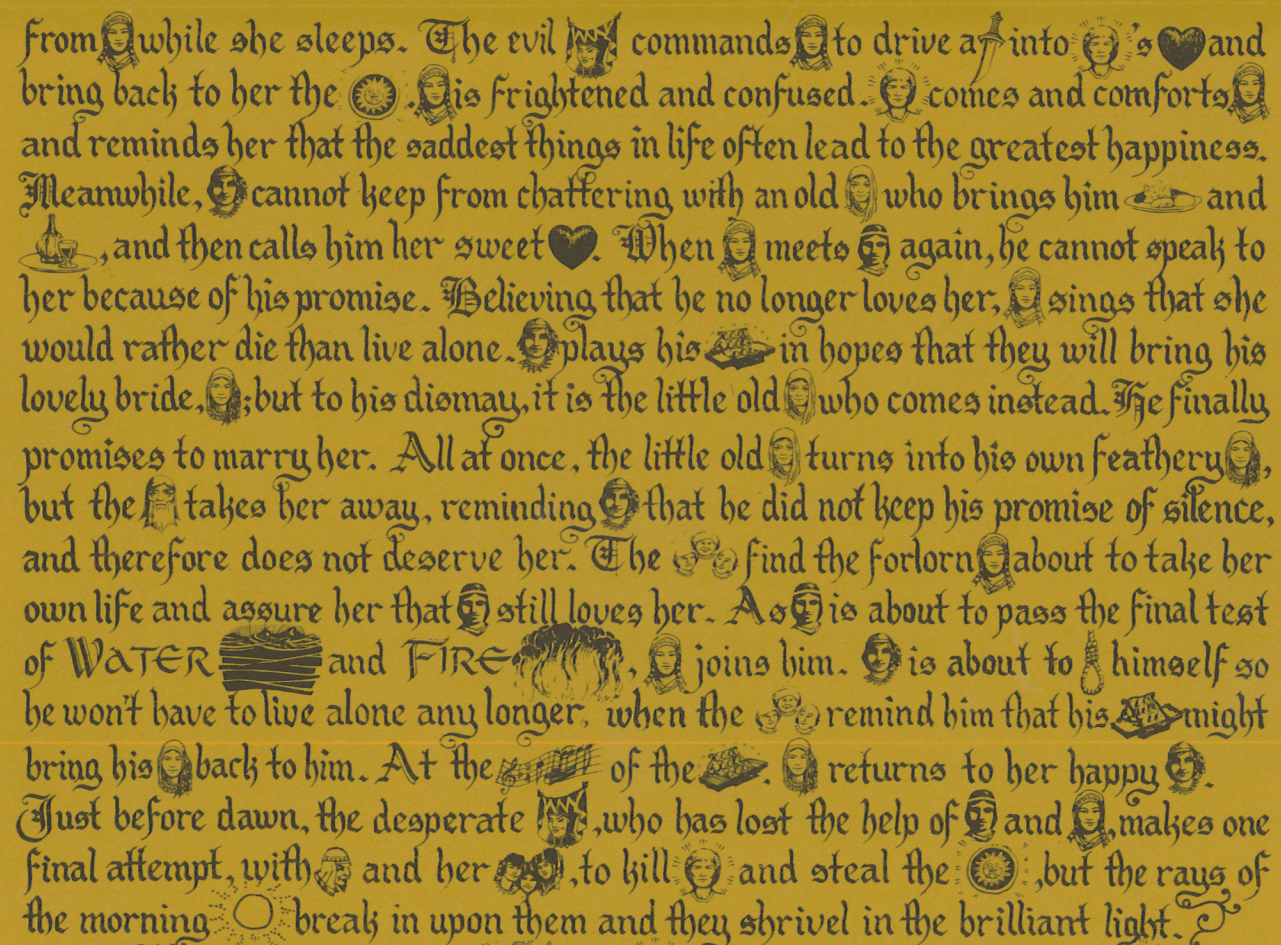 from while she sleeps. The evil commands to drive a into 's and
bring back to her the . is frightened and confused. comes and comforts
and reminds her that the saddest things in life often lead to the greatest happiness.
Meanwhile, cannot keep from chattering with an old who brings him and
, and then calls him her sweet . When meets again, he cannot speak to
her because of his promise. Believing that he no longer loves her, sings that she
would rather die than live alone. plays his in hopes that they will bring his
lovely bride, ; but to his dismay, it is the little old who comes instead. He finally
promises to marry her. All at once, the little old turns into his own feathery ,
but the takes her away, reminding that he did not keep his promise of silence,
and therefore does not deserve her. The find the forlorn about to take her
own life and assure her that still loves her. As is about to pass the final test
of WATER and FIRE , joins him. is about to himself so
he won't have to live alone any longer, when the remind him that his might
bring his back to him. At the of the . returns to her happy .
Just before dawn, the desperate , who has lost the help of and , makes one
final attempt, with and her , to kill and steal the , but the rays of
the morning break in upon them and they shrivel in the brilliant light.